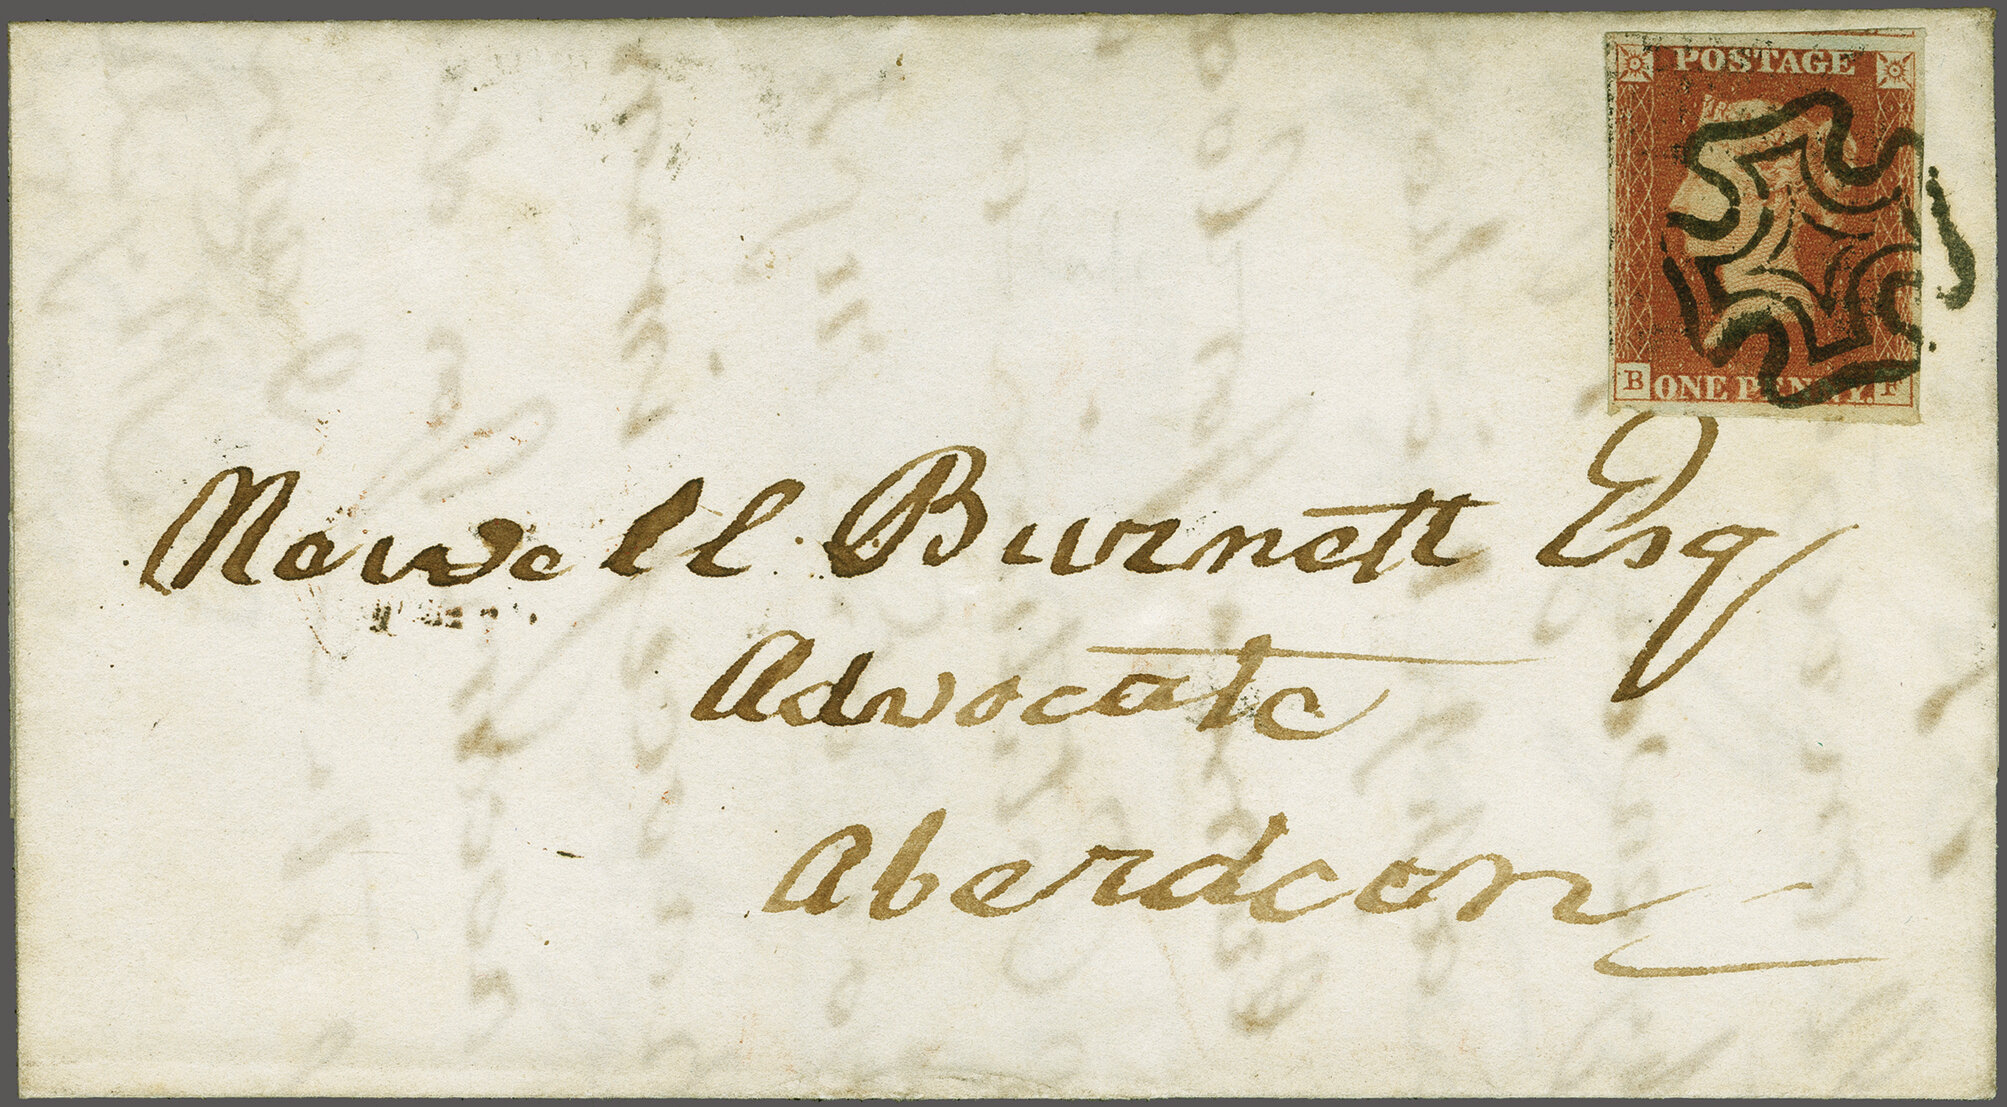 POSTAGE
B ONE PENNY. F
Newell Burnett Esq
Advocate
Aberdeen